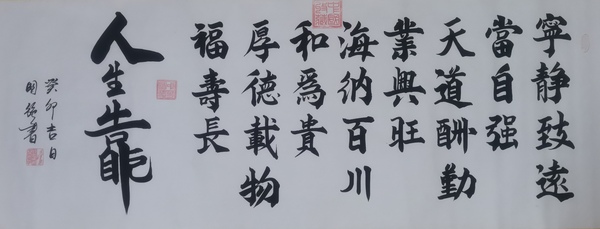 寧静致遠
當自强
天道酬勤
業興旺
海納百川
和爲貴
厚德載物
福壽長
人生
癸卯吉日